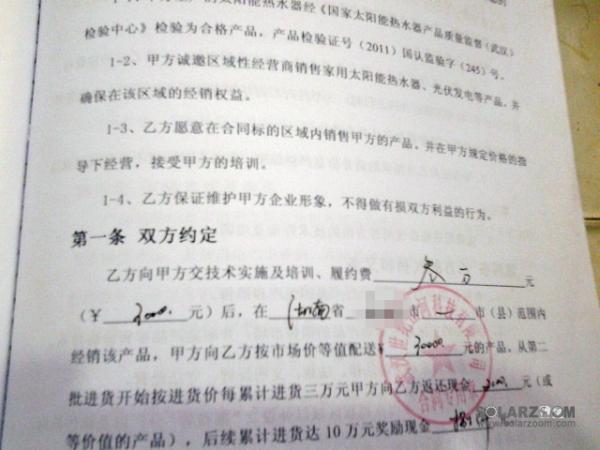 太阳能热水器经《国家太阳能热水器产品质量监督（武汉）
检验中心》检验为合格产品，产品检验证号（2011）国认监验字（245）号。
1-2、甲方诚邀区域性经营商销售家用太阳能热水器、光伏发电等产品，并
确保在该区域的经销权益。
1-3、乙方愿意在合同标的区域内销售甲方的产品，并在甲方规定价格的指
导下经营，接受甲方的培训。
1-4、乙方保证维护甲方企业形象，不得做有损双方利益的行为。
第一条 双方约定
乙方向甲方交技术实施及培训、履约费 叁万 元
（¥ 元）后，在 湖南 省 市 市（县）范围内
经销该产品，甲方向乙方按市场价等值配送¥ 30000 元的产品，从第二
批进货开始按进货价每累计进货三万元甲方向乙方返还现金 元（或
等价值的产品），后续累计进货达 10 万元奖励现金
合同专用章
SOLARZOOM
www.solarzoom.com